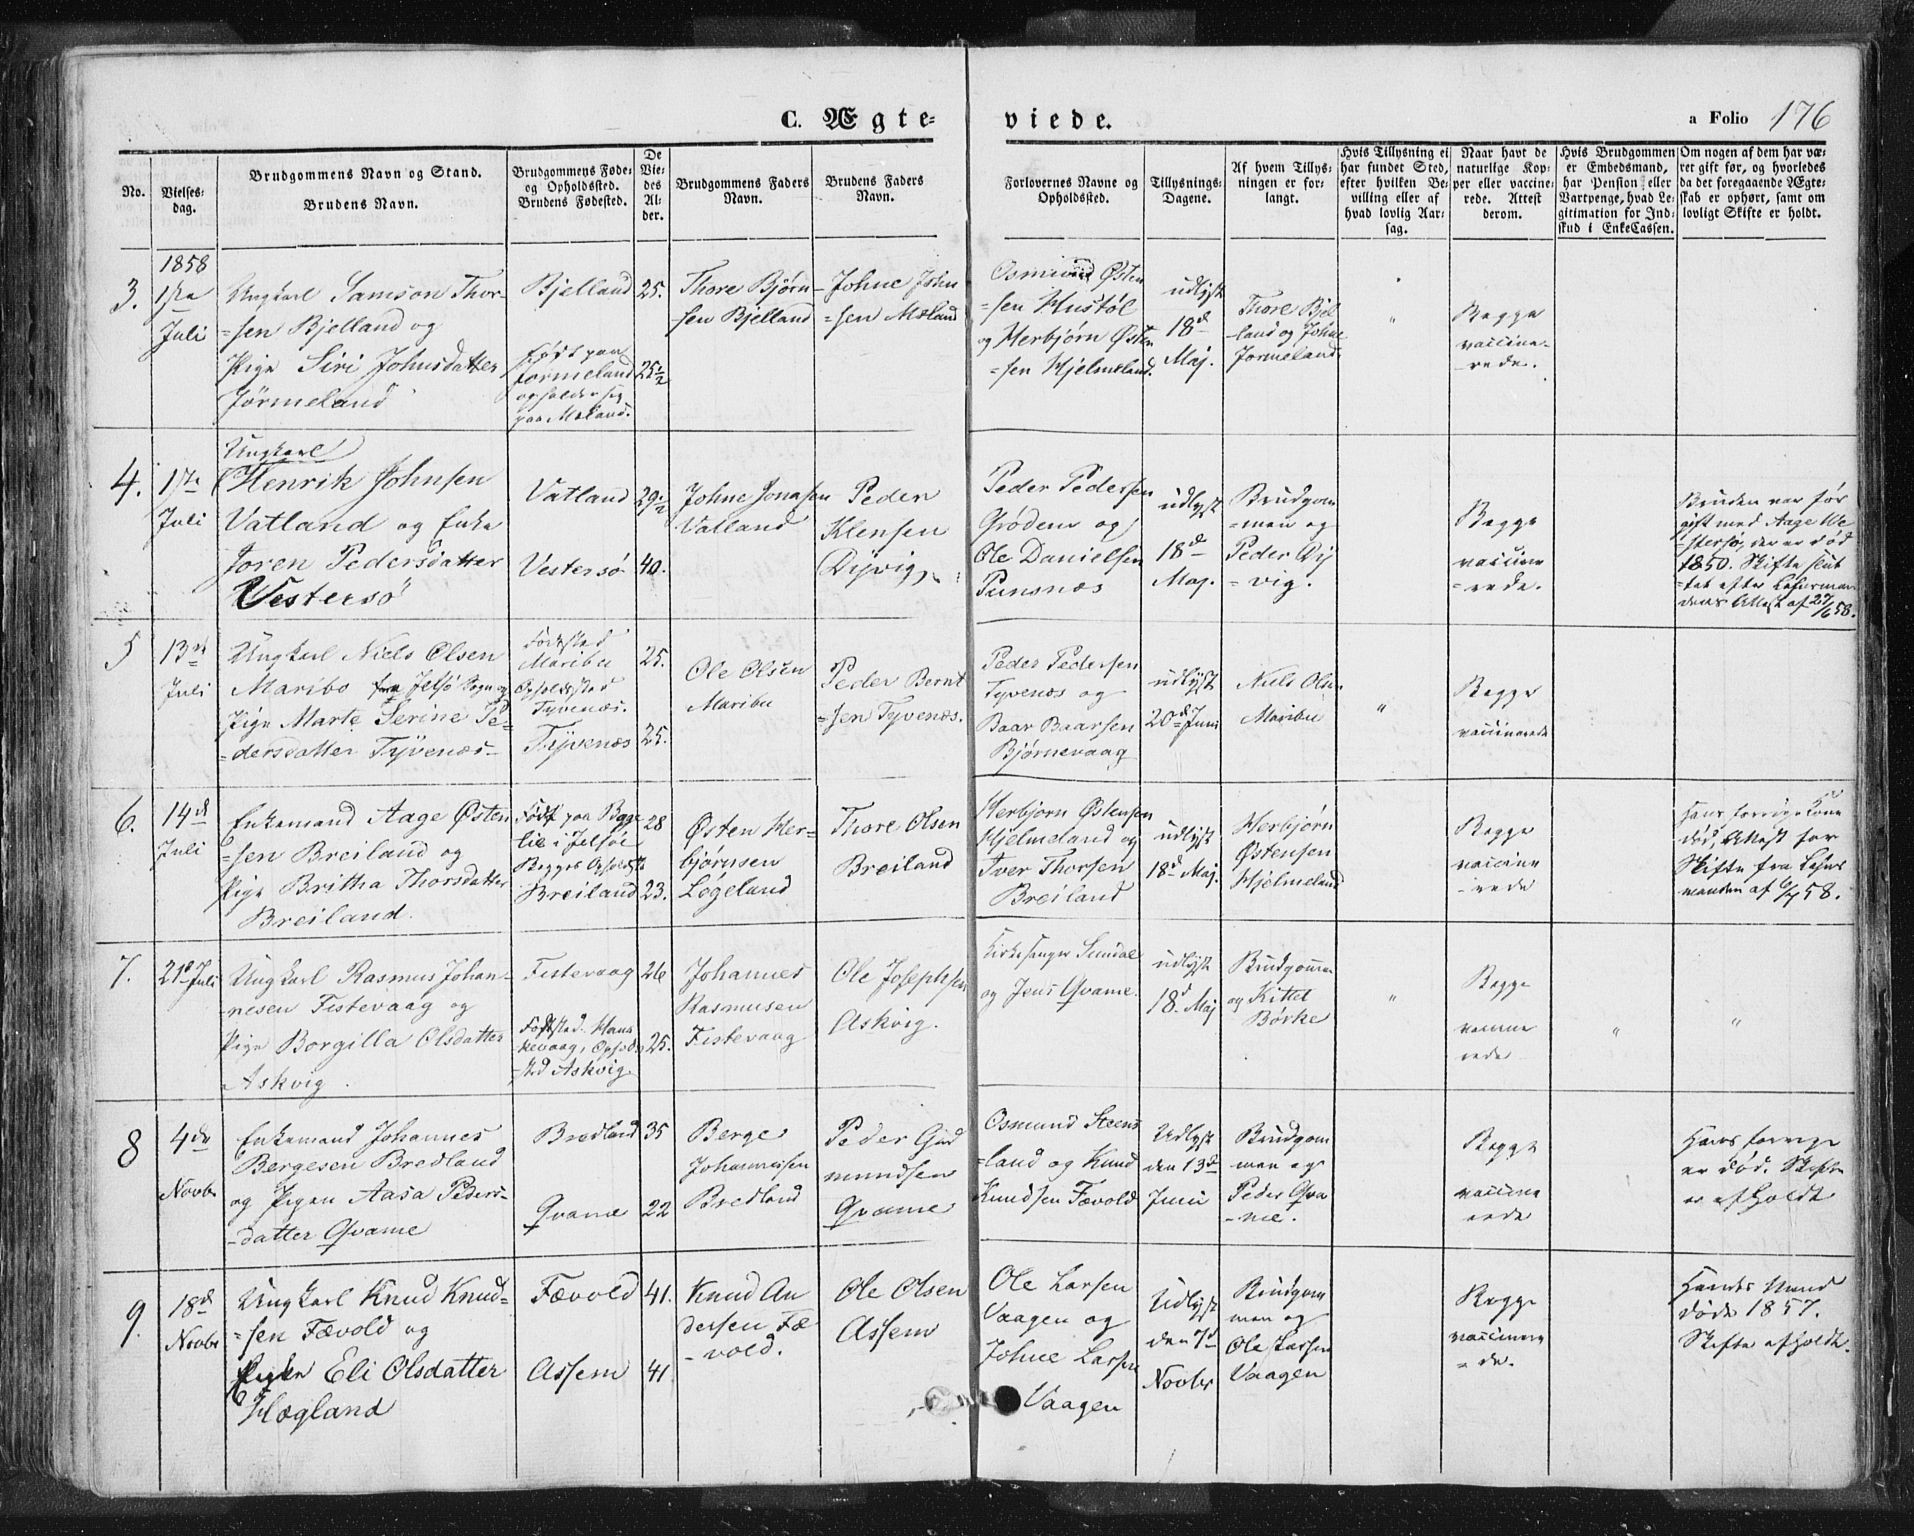 C. Ægte-
viede.
a Folio 176
No.
Vielses-
dag.
Brudgommens Navn og Stand.
Brudens Navn.
Brudgommens Føde-
og Opholdssted.
Brudens Fødested.
De
Vie-
des
Al-
der.
Brudgommens Faders
Navn.
Brudens Faders
Navn.
Forlovernes Navne og
Opholdssted.
Tillysnings-
Dagene.
Af hvem Tillys-
ningen er for-
langt.
Hvis Tillysning ei
har fundet Sted,
efter hvilken Be-
villing eller af
hvad lovlig Aar-
sag.
Naar havt de
naturlige Kop-
per eller vaccine-
rede. Attest
derom.
Hvis Brudgommen
er Embedsmand,
har Pension eller
Vartpenge, hvad Le-
gitimation for Ind-
skud i EnkeCassen.
Om nogen af dem har væ-
ret gift før, og hvorledes
da det foregaaende Ægte-
skab er ophørt, samt om
lovligt Skifte er holdt.
1858
3.
1ste
Juli
Ungkarl Samson Thor-
=sen Bjelland og
Pige Siri Johnsdatter
Jørmeland
Bjelland
født paa
Jormeland
opholder sig
paa Mæland.
25.
25½
Thore Bjørn-
sen Bjelland
Johne John
=sen Mæland
Osmund Østen
=sen Hustøl
og Herbjørn Østen
=sen Hjelmeland.
udlyst
18d
Maj.
Thore Bjel
land og Johne
Jormeland.
"
"
Begge
vaccine-
rede.
4.
1ste
Juli
Ungkarl
Henrik Johnsen
Vatland og Enke
Joren Pedersdatter
Vestersø
Vatland
Vestersø
29½
40.
Johne Jonasen
Vatland
Peder
Klensen
Dyvig.
Peder Pedersen
Grødem og
Ole Danielsen
Punsnæs
udlyst
18d
Maj.
Brudgom
=men og
Peder Dy
=vig.
Begge
vaccine
=rede.
Bruden var før
gift med Aage We
stersø, der er død
1850. Skifte slut
=tet efter Lehnsman
dens Attest af 27/6 58.
5
13de
Juli
Ungkarl Niels Olsen
Maribo fra Jelsø Sogn og
Pige Marte Serine Pe-
=dersdatter Tyvenæs
Fødested
Maribu
Opholdssted
Tyvenæs.
Tyvenæs
25.
25.
Ole Olsen
Maribu
Peder Bernt
=sen Tyvenæs.
Peder Pedersen
Tyvenæs og
Baar Baarsen
Bjørnevaag
udlyst
20d Juni
Niels Olsen
Maribu
"
Begge
vaccinerede
6.
14d
Juli
Enkemand Aage Østen
=sen Breiland og
Pige Britha Thorsdatter
Breiland.
Født paa Bøge
lie i Jelsøe
Begges Opholdst
Breiland
28
23.
Østen Her-
bjørnsen
Løgeland
Thore Olsen
Breiland
Herbjorn Østensen
Hjelmeland og
Iver Thorsen
Breiland
udlyst
18d Maj.
Herbjørn
Østensen
Hjelmeland
Begge
vaccine
-rede
Hans forrige Kone
død, Attest for
Skifte fra Lehns
manden af 6/7 58.
7.
21d Juli
Ungkarl Rasmus Johan-
-nesen Fistevaag og
Pige Borgilla Olsdatter
Askvig.
Fistevaag
Fødested. Hana
kevaag, Ophold
sted Askvig
26
25.
Johannes
Rasmusen
Fistevaag
Ole Josephsen
Askvig.
Kirkesanger Sundal
og Jens Qvame.
udlyst
18d Maj
Brudgommen
og Kittel
Børke
"
Begge
vaccine
rede
"
"
8
4de
Novbr
Enkemand Johannes
Bergesen Bredland
og Pigen Aasa Peders-
-datter Qvame
Bredland
Qvame
35
22
Berge
Johannesen
Bredland
Peder Gud
mundsen
Qvame
Osmund Steens
=land og Knud
Knudsen Fævold
Udlyst
den 13de
Juni
Brudgom
men og
Peder Qva
-me.
Begge
vaccine
rede
Hans forrige
er død. Skifte
er afholdt
9.
18d
Novbr
Ungkarl Knud Knud=
=sen Fævold og
Eli Olsdatter
Hægland
Fævold
Assem
41.
41
Knud An
dersen Fæ
-vold.
Ole Olsen
Assem
Ole Larsen
Vaagen og
Johne Larsen
Vaagen
Udlyst
den 7d
Novbr
Brudgom
men og
Ole Larsen
Vaagen
Begge
vaccinere
=de.
Hendes Mand
døde 1857.
Skifte afholdt.